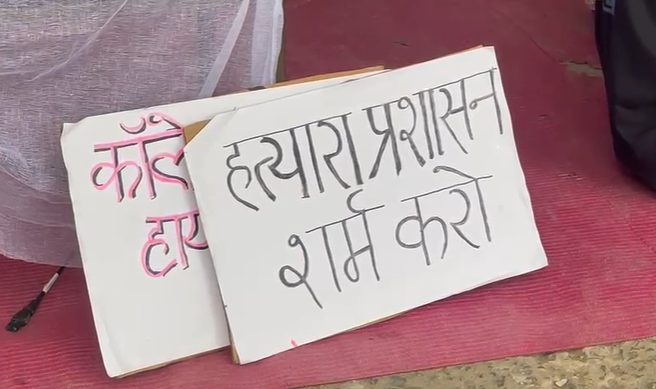 हत्यारा प्रशासन
शर्म करो
कॉले
हाय